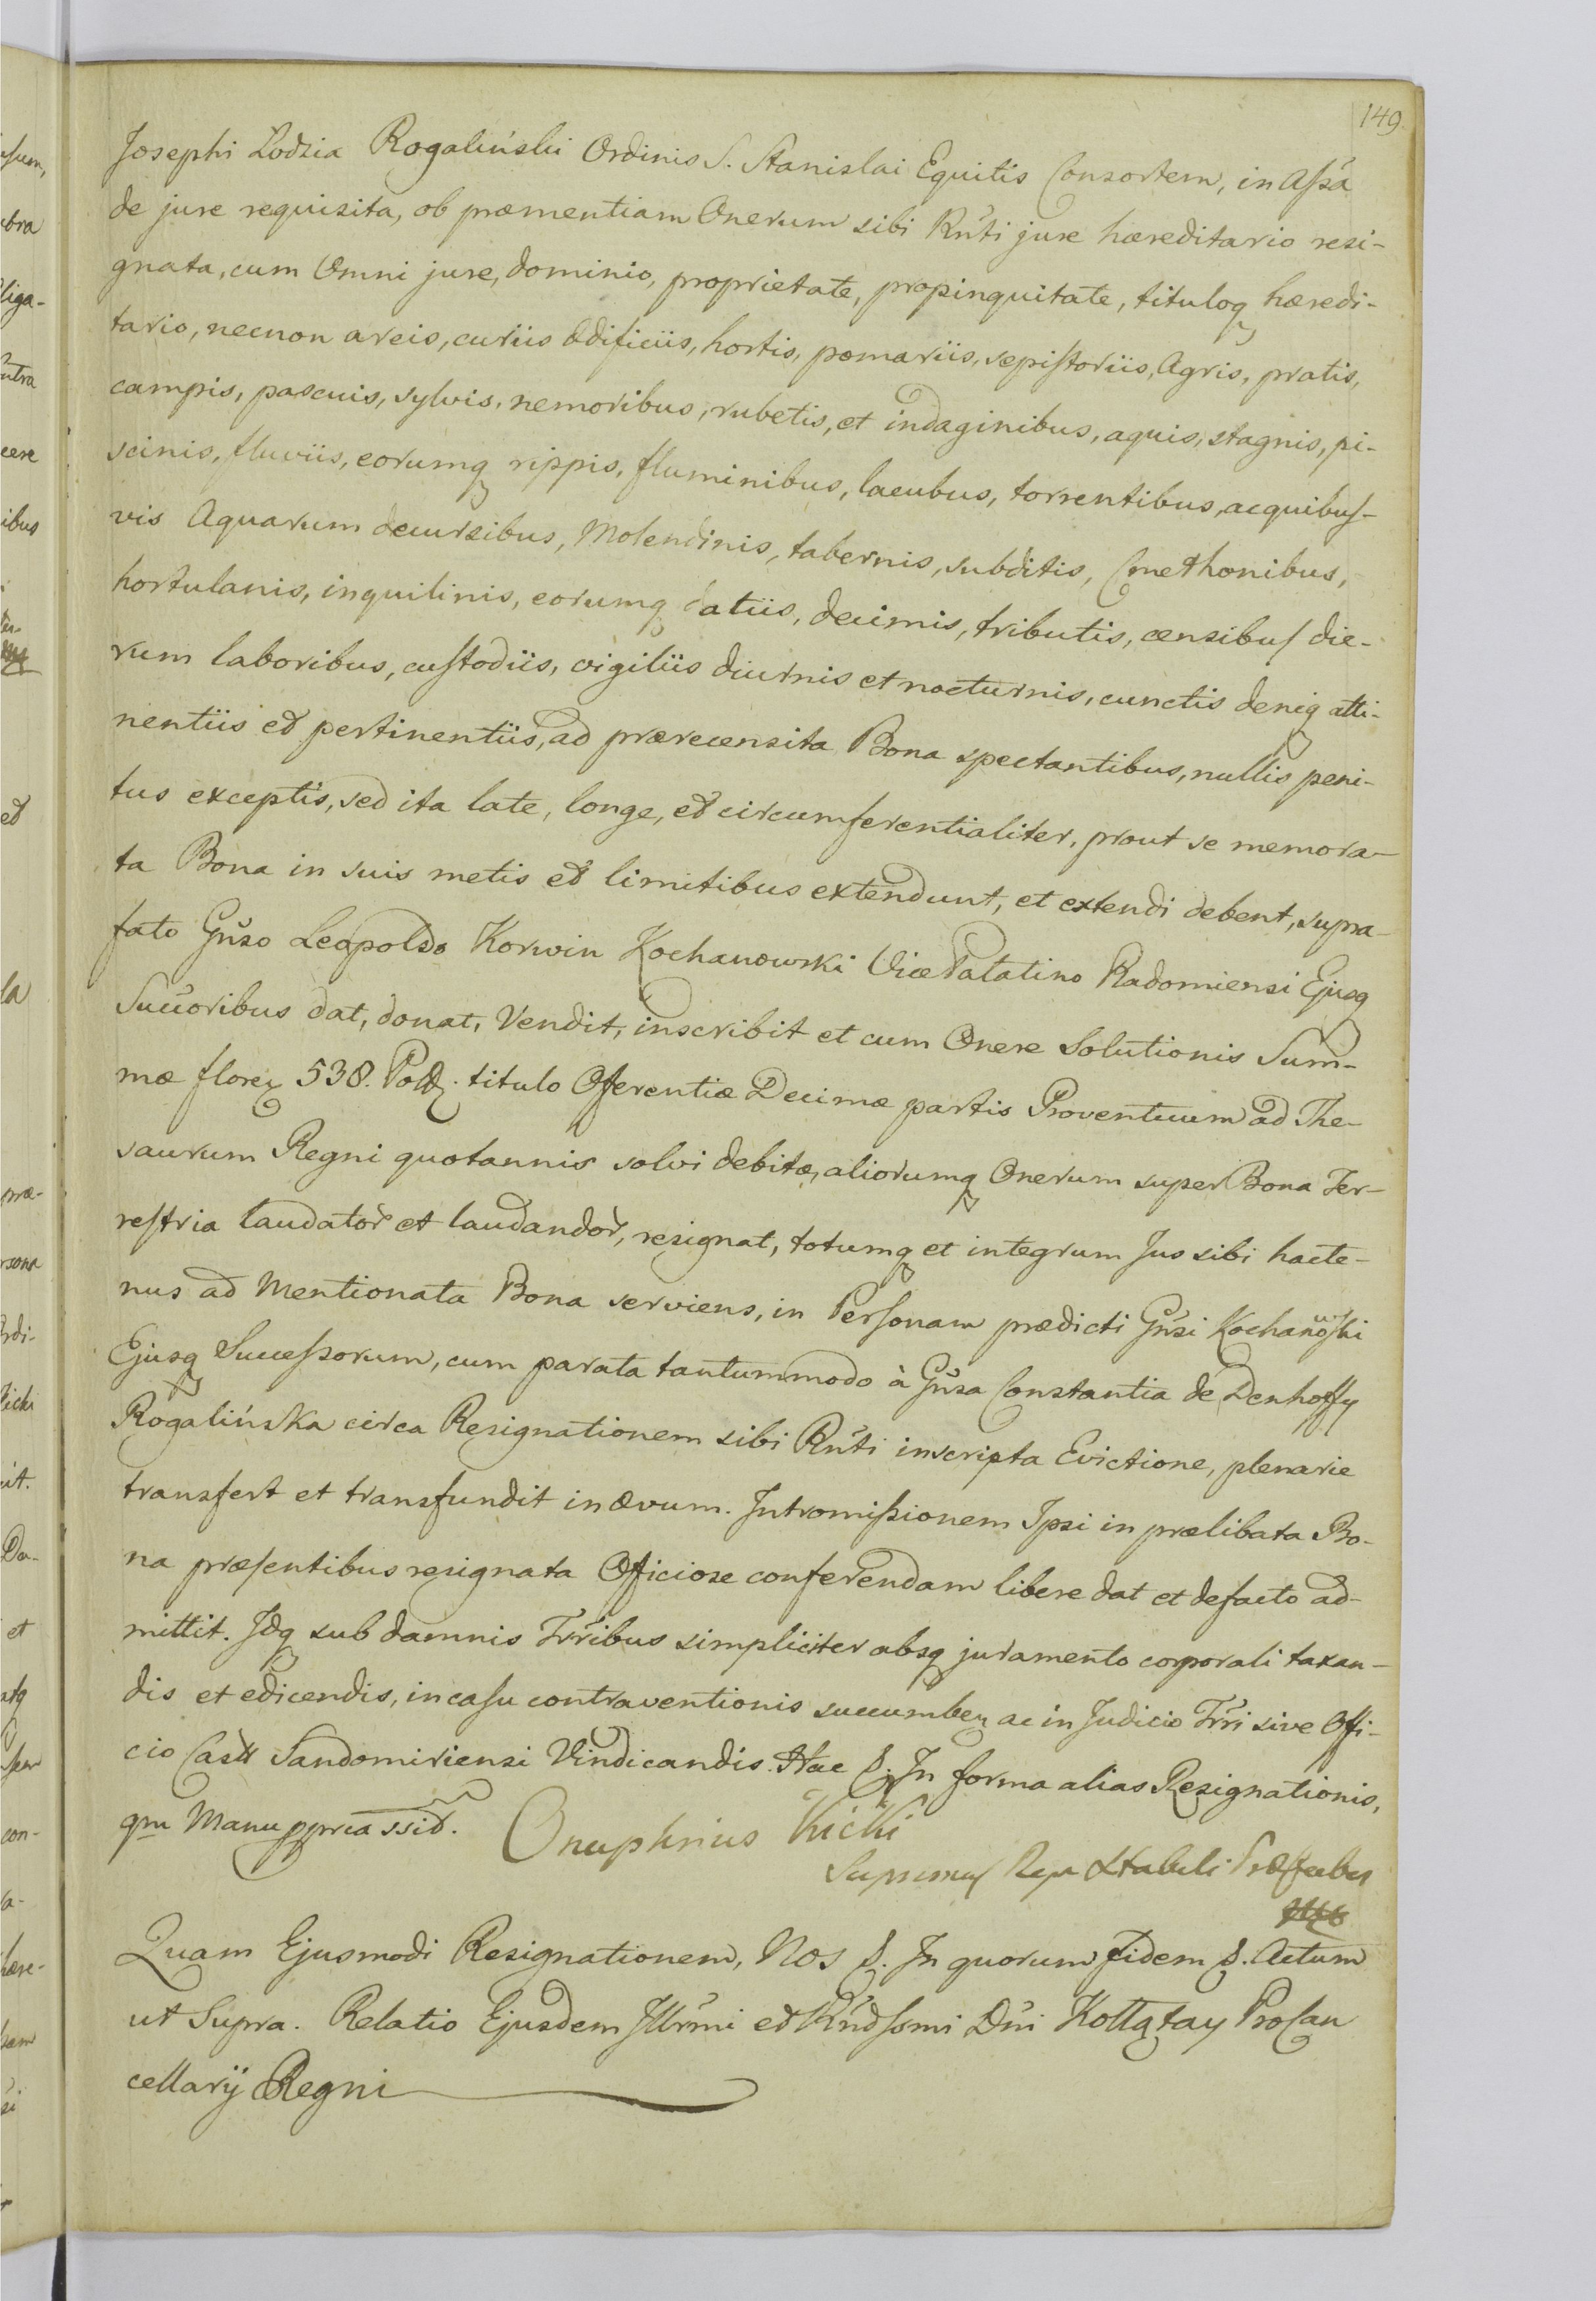 149.
Josephi Łodzia Rogaliński Ordinis S. Stanislai Equitis Consortem, in Assa
de jure requisita, ob præmentiam Onerum sibi Rnti jure hæreditario resi-
gnata, cum Omni jure, dominio, proprietate, propinquitate, tituloq hæredi-
tario, necnon areis, curiis ædificiis, hortis, pomariis, sepistoriis, Agris, pratis,
campis, pascuis, sylvis, nemoribus, rubetis, et indaginibus, aquis, stagnis, pi-
scinis, fluviis, eorumq rippis, fluminibus, lacubus, torrentibus, acquibus-
vis Aquarum decursibus, Molendinis, tabernis, subditis, Cmethonibus,
hortulanis, inquilinis, eorumq datiis, decimis, tributis, censibus die-
rum laboribus, custodiis, vigiliis diurnis et nocturnis, cunctis deniq atti-
nentiis et pertinentiis, ad prærecensita Bona spectantibus, nullis peni-
tus exceptis, sed ita late, longe, et circumferentialiter, prout se memora-
ta Bona in suis metis et limitibus extendunt, et extendi debent, supra-
fato Gnso Leopoldo Korwin Kochanowski Vice Palatino Radomiensi Ejusq
Succoribus dat, donat, Vendit, inscribit et cum Onere Solutionis Sum-
mæ floren 538. Pol. titulo Oferentiæ Decimæ partis Proventuum ad The-
saurum Regni quotannis solvi debitæ, aliorumq Onerum super Bona Ter-
restria laudator et laudandor, resignat, totumq et integrum Jus sibi hacte-
nus ad Mentionata Bona serviens, in Personam prædicti Gnsi Kochanowski
Ejusq Successorum, cum parata tantummodo à Gnsa Constantia de Denhoffy
Rogalińska circa Resignationem sibi Rnti inscripta Evictione, plenarie
transfert et transfundit in ævum. Intromissionem Ipsi in prælibata Bo-
na præsentibus resignata Officiose conferendam libere dat et defacto ad-
mittit. Idq sub damnis Trribus simpliciter absq juramento corporali taxan-
dis et edicendis, in casu contraventionis succumben ac in Judicio Trri sive Offi-
cio Castr Sandomiriensi Vindicandis. Hac p. In forma alias Resignationis,
qm Manu ppria ssit. Onuphrius Kicki
Supremus Regn Stabuli Præfectus
Quam Ejusmodi Resignationem, Nos p. In quorum fidem p. Actum
ut Supra. Relatio Ejusdem Illrmi et Rndssmi Dni Kołłątay ProCan
cellarij Regni